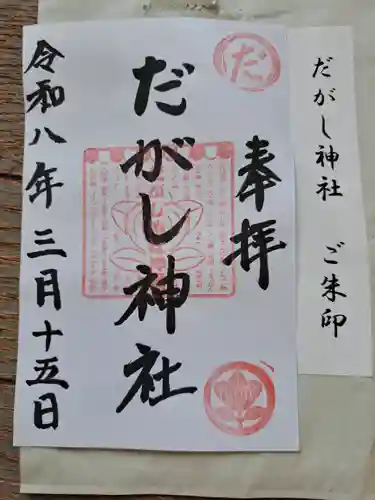 だがし神社 ご朱印
奉拝
だ
だがし神社
令和八年三月十五日